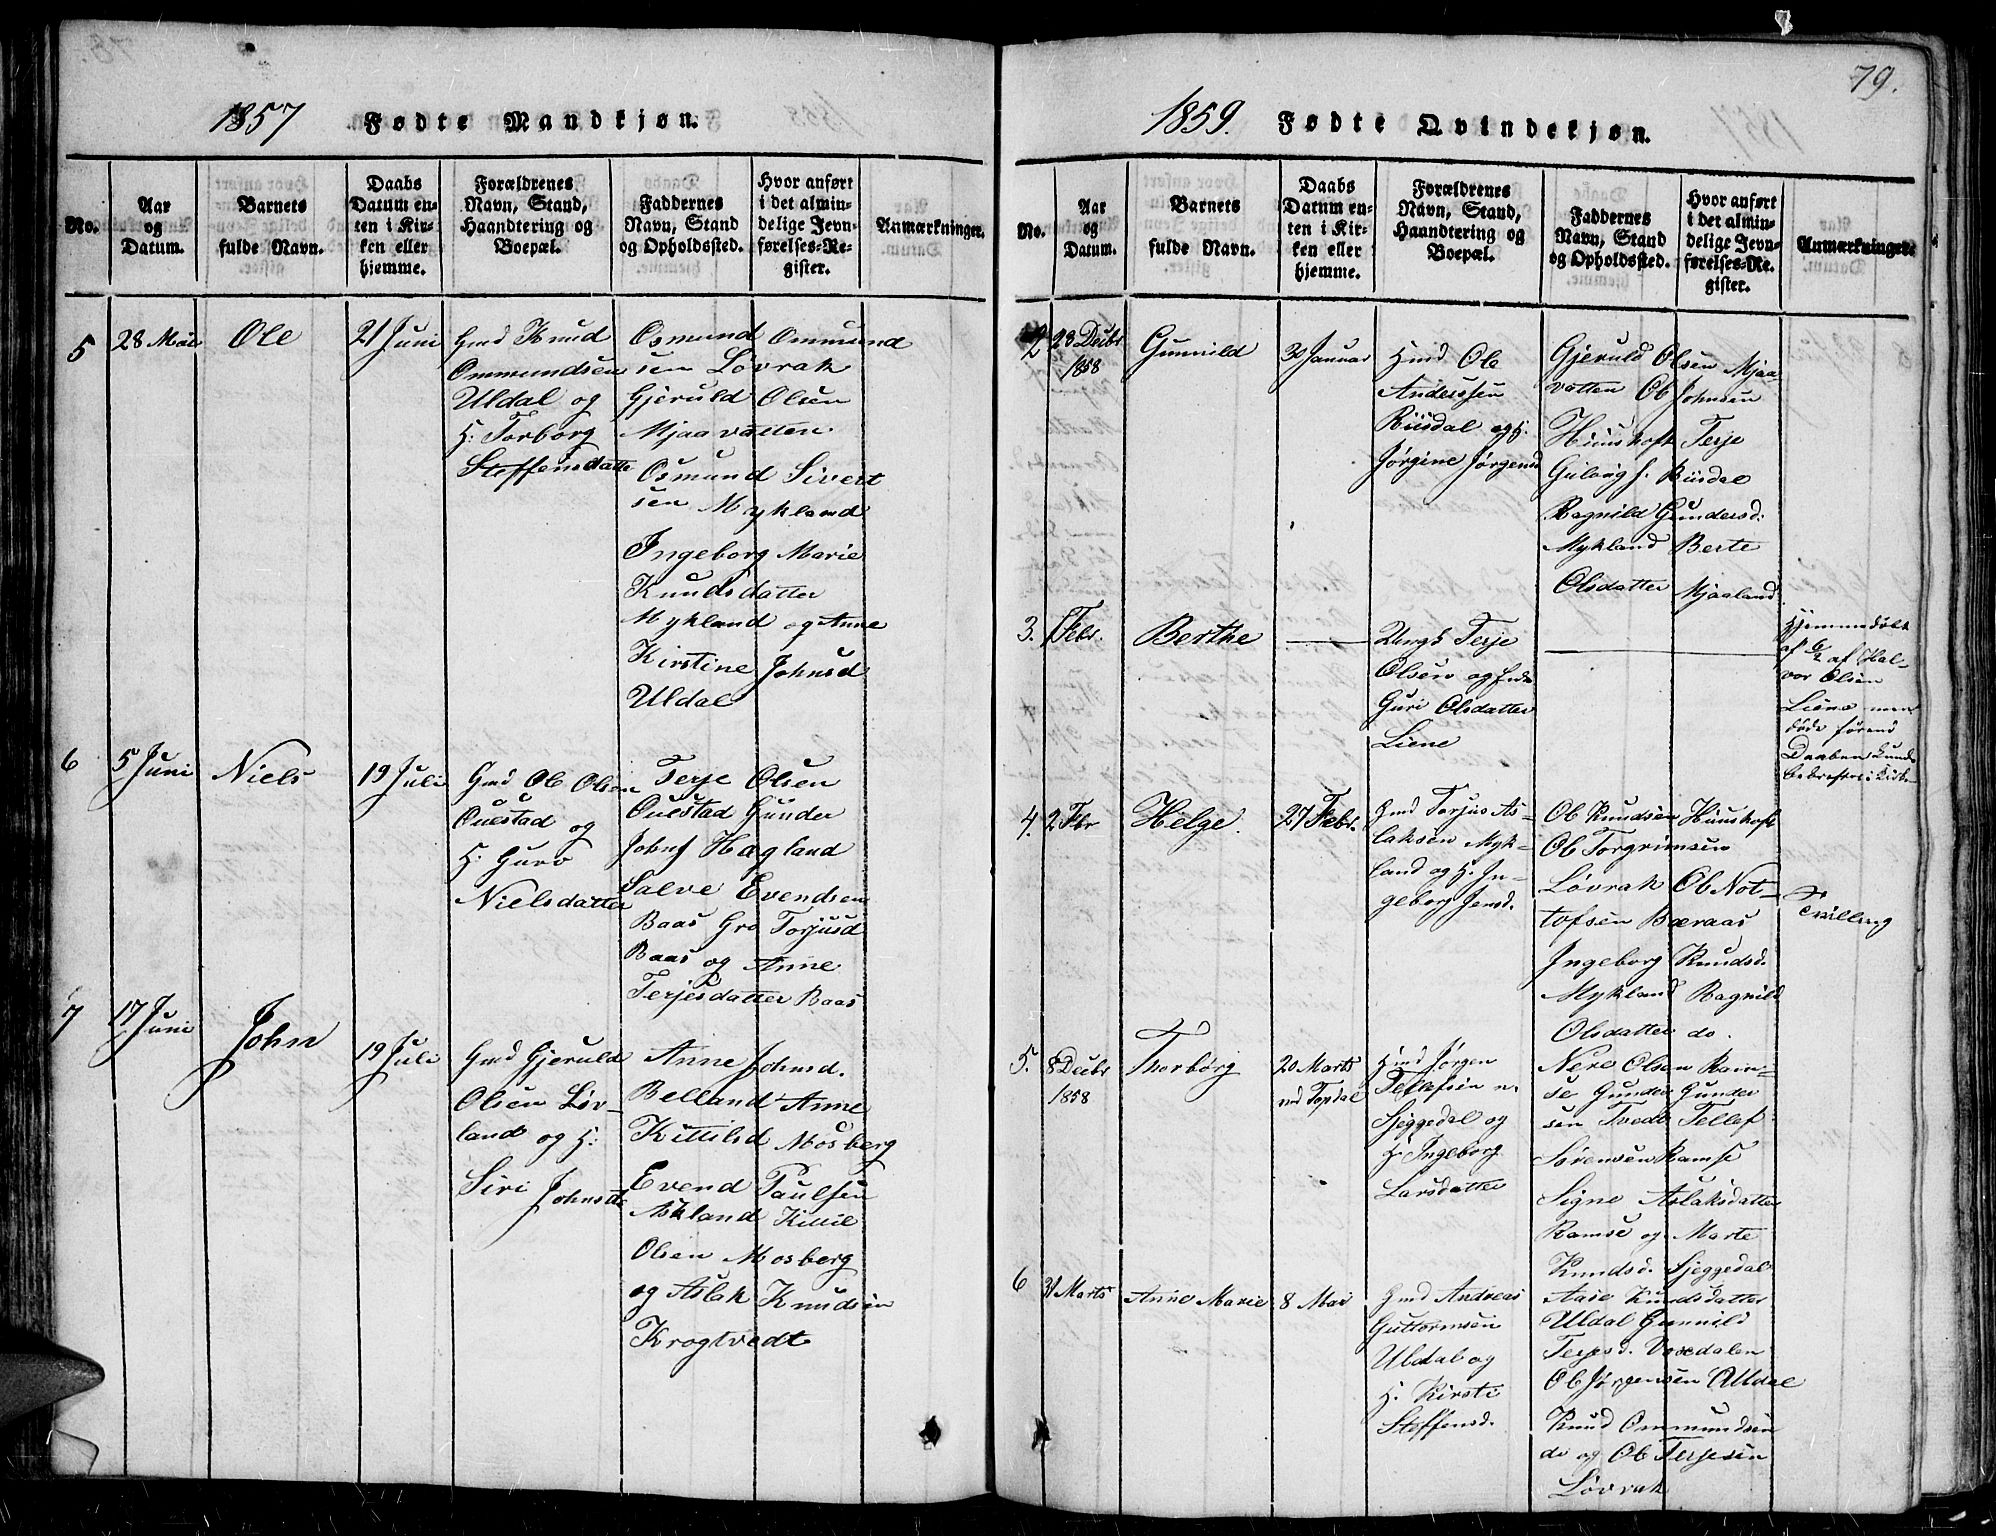 1857 Fødte Mandkjøn.
No.
Aar
og
Datum.
Barnets
fulde Navn.
Daabs
Datum en-
ten i Kir-
ken eller
hjemme.
Forældrenes
Navn, Stand,
Haandtering og
Boepæl.
Faddernes
Navn, Stand
og Opholdssted.
Hvor anført
i det almin-
delige Jevn-
førelses-Re-
gister.
Anmærkninger.
5
28 Mai
Ole
21 Juni
Gmd Knud
Ommundsen
Uldal og
H: Torborg
Steffensdatte
Osmund Ommund
sen Løvrak
Gjeruld Olsen
Mjaavatten
Osmund Sivert
sen Mykland
Ingeborg Marie
Knudsdatter
Mykland og Anne
Kirstine Johnsd
Uldal
6
5 Juni
Niels
19 Juli
Gmd Ole Olsen
Ouestad og
H: Guro
Nielsdatter
Terje Olsen
Ouestad Gunder
Johns Hægland
Salve Evendsen
Baas Gro Torjusd
Baas og Anne
Terjesdatter Baas
7
17 Juni
John
19 Juli
Gmd Gjeruld
Olsen Løv-
land og H:
Siri Johnsd
Anne Johnsd.
Belland Anne
Kittilsd Mosberg
Evend Paulsen
Askland Kittil
Olsen Mosberg
og Aslak Knudsen
Krogtvedt
79.
1859. Fødte Qvindekjøn.
No.
Aar
og
Datum.
Barnets
fulde Navn.
Daabs
Datum en-
ten i Kir-
ken eller
hjemme.
Forældrenes
Navn, Stand,
Haandtering og
Boepæl.
Faddernes
Navn, Stand
og Opholdssted.
Hvor anført
i det almin-
delige Jevn-
førelses-Re-
gister.
Anmærkninger.
2
23 Decbr
1858
Gunnild
30 Januar
Hmd Ole
Anderssen
Riisdal og H.
Jørgine Jørgensd
Gjeruld Olsen Mjaa-
vatten Ole Johnsen
Huuskoft Terje
Gulovs. Riisdal
Ragnild Gundersd:
Mykland Berte
Olsdatter Mjaaland
3.
1 Febr.
Berthe
Ungk Terje
Olsen og
Guri Olsdatter
Liene
Hjemmedøbt
af 6/2 af Hal-
vor Olsen
Liene men
døde førend
Daaben kunde
bekræftes i Kirke
4.
2 Fbr
Helge.
27 Febr.
Gmd Torjus As-
laksen Myk-
land og H. In-
geborg Jensd.
Ole Knudsen Huuskoft
Ole Torgrimsen
Løvrak Ole Not-
tofsen Bæraas
Ingeborg Knudsd.
Mykland Ragnild
Olsdatter do.
Tvilling
5.
8 Decbr
1858
Thorborg
20 Marts
ved Topdal
Hmd Jørgen
Tellefsen n.
Sjeggedal og
H. Ingeborg
Larsdatter
Nere Olsen Ram-
se Gunder Gunder
sen Tvedt Tellef
Sørensen Ramse
Signe Aslaksdatter
Ramse og Marte
Knudsd. Sjeggedal
6
31 Marts
Anne Marie
8 Mai
Gmd Andreas
Guttormsen
Uldal og
H. Kirsti
Steffensd.
Aase Knudsdatter
Uldal Gunnild
Terjesd. Vasedalen
Ole Jørgensen Uldal
Knud Ommundsen
do og Ole Terjesen
Løvrak